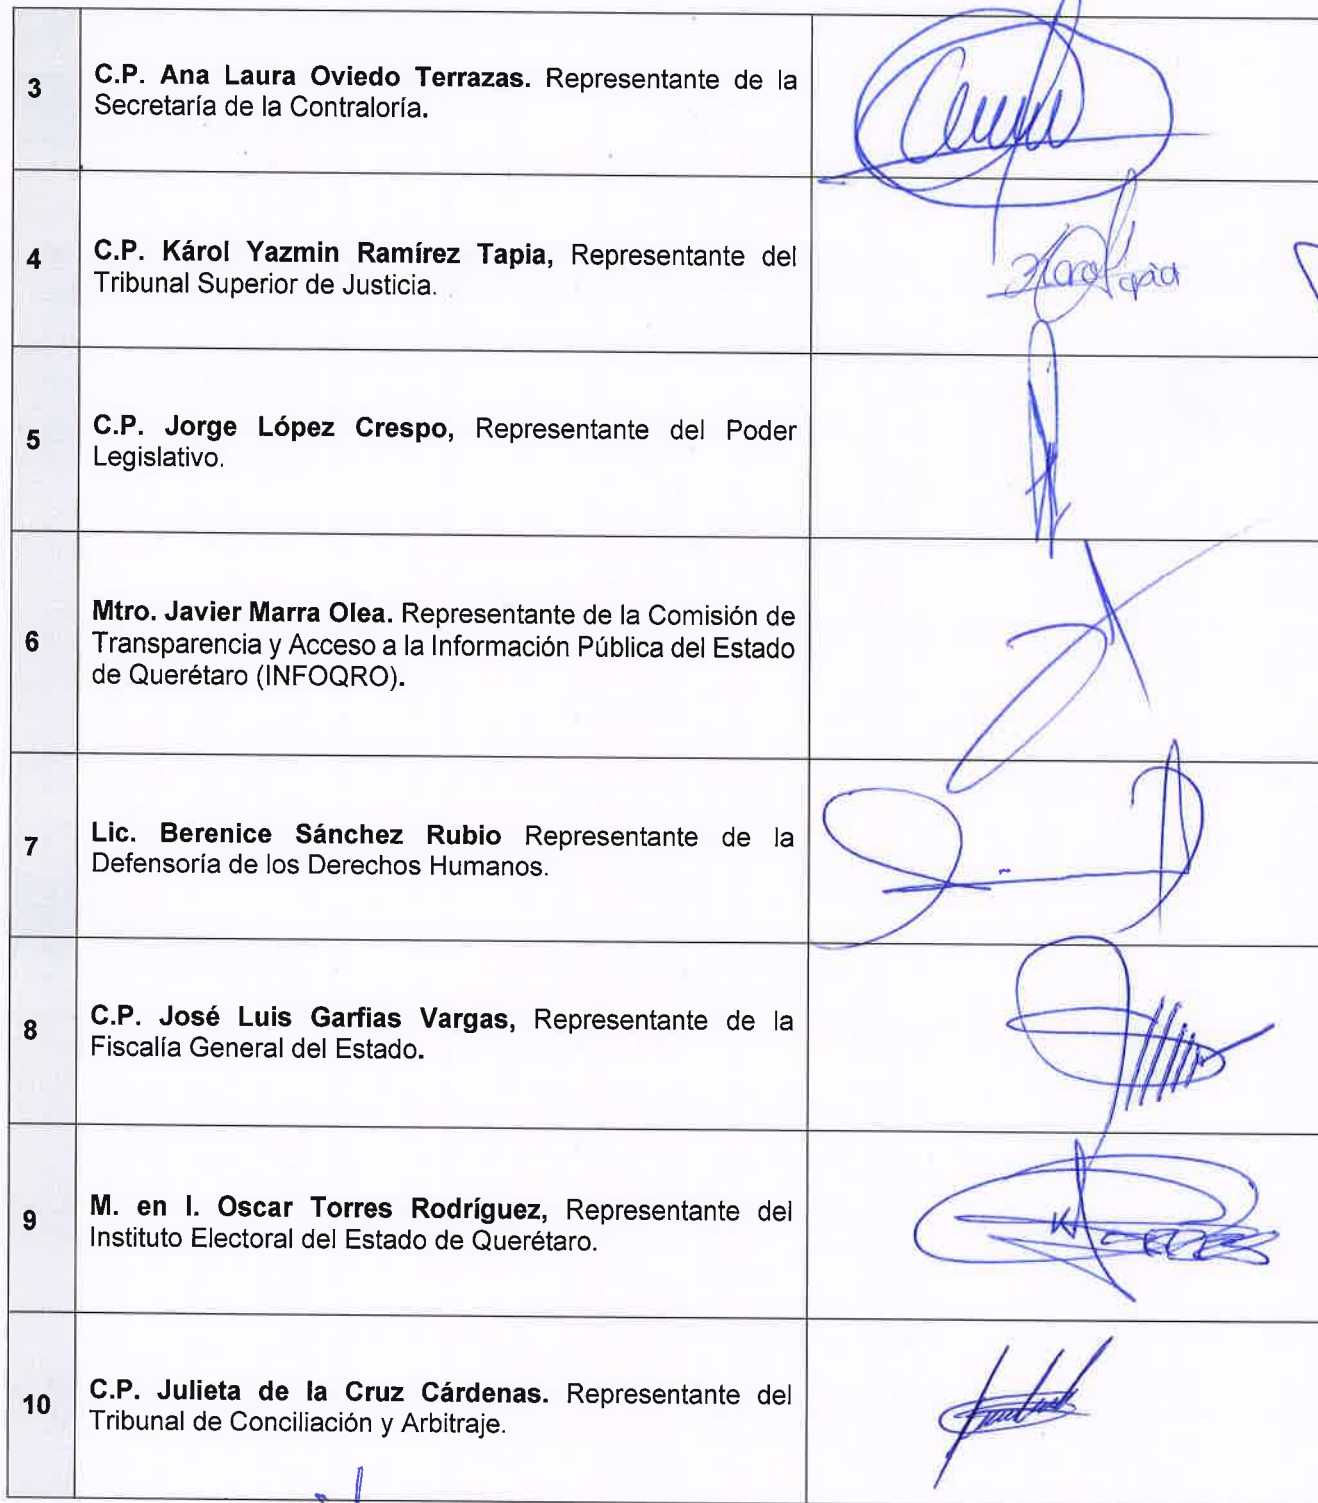 3
C.P. Ana Laura Oviedo Terrazas. Representante de la
Secretaría de la Contraloría.
4
C.P. Károl Yazmin Ramírez Tapia, Representante del
Tribunal Superior de Justicia.
5
C.P. Jorge López Crespo, Representante del Poder
Legislativo.
6
Mtro. Javier Marra Olea. Representante de la Comisión de
Transparencia y Acceso a la Información Pública del Estado
de Querétaro (INFOQRO).
7
Lic. Berenice Sánchez Rubio Representante de la
Defensoría de los Derechos Humanos.
8
C.P. José Luis Garfias Vargas, Representante de la
Fiscalía General del Estado.
9
M. en I. Oscar Torres Rodríguez, Representante del
Instituto Electoral del Estado de Querétaro.
10
C.P. Julieta de la Cruz Cárdenas. Representante del
Tribunal de Conciliación y Arbitraje.